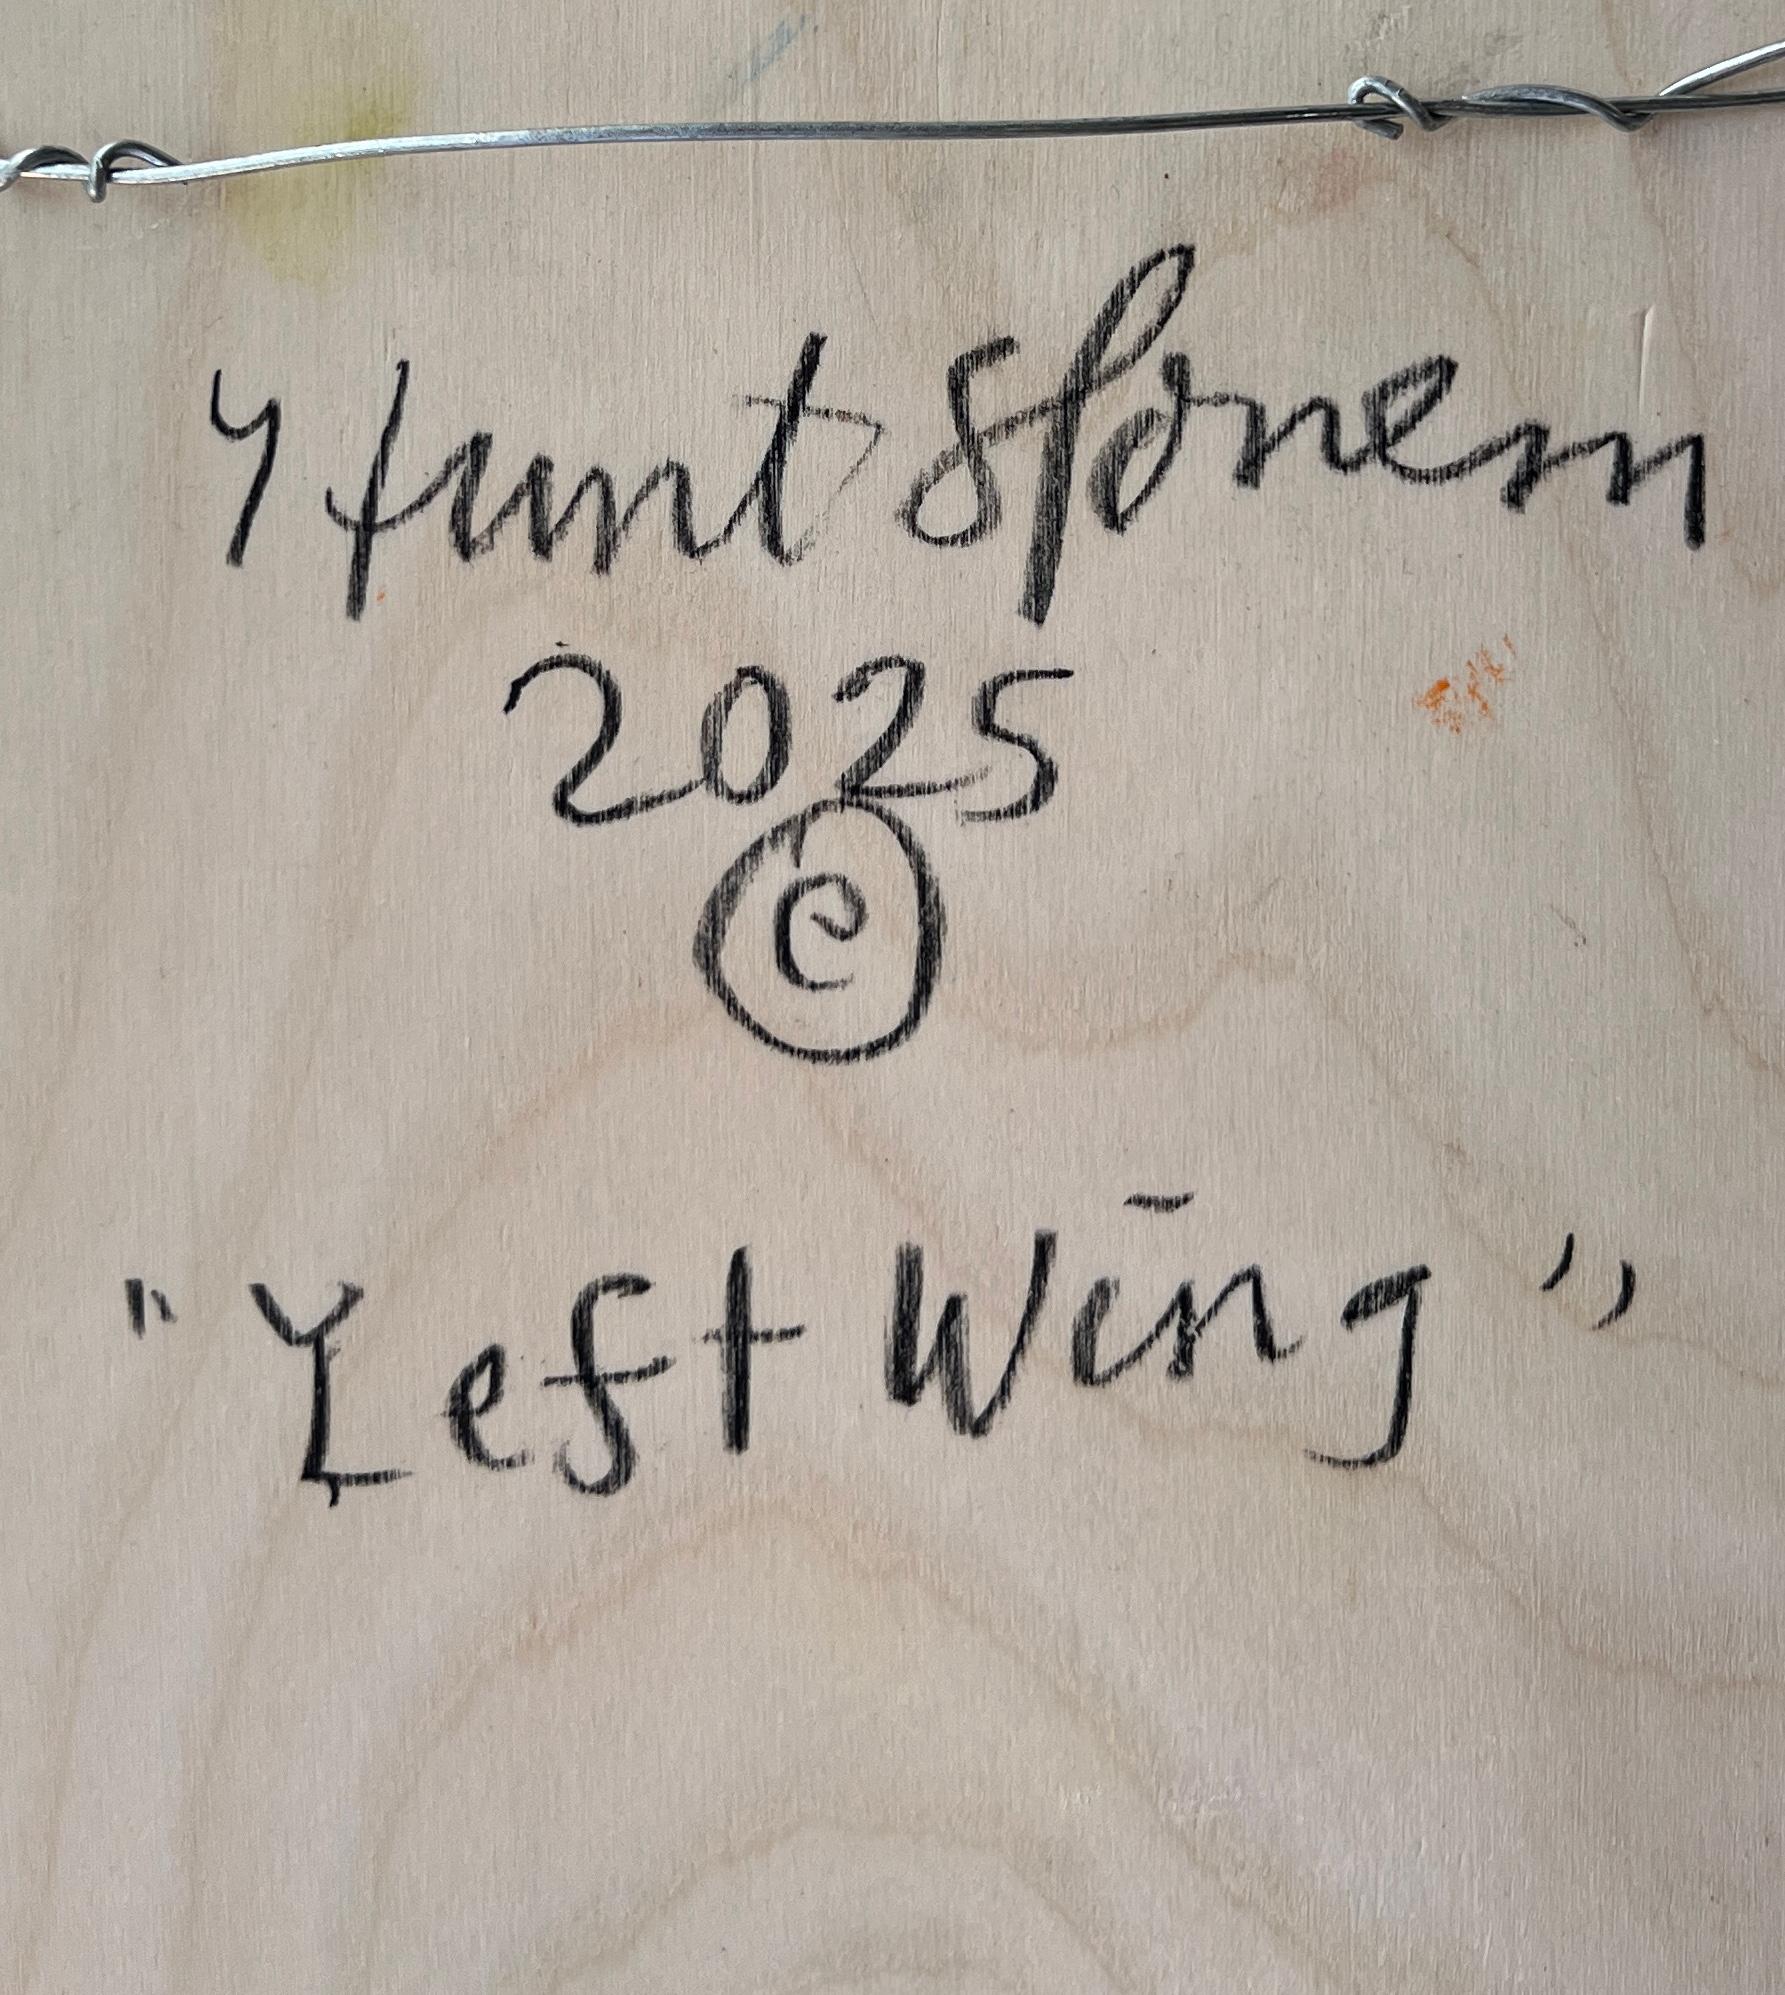 Hunt Slonem
2025
©
"Left Wing"